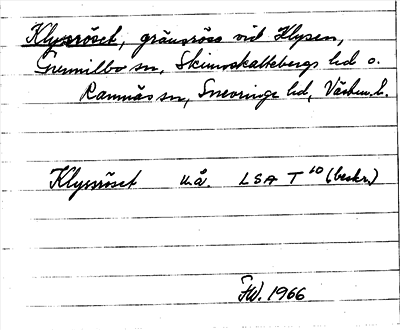 Klyvsröset, gränsröse vid Klyven,
Gunnilbo sn, Skinnskattebergs hd o.
Ramnäs sn, Snevringe hd, Västm. l.
Klyvsröset u.å. LSA T 10 (beskr.)
FW. 1966